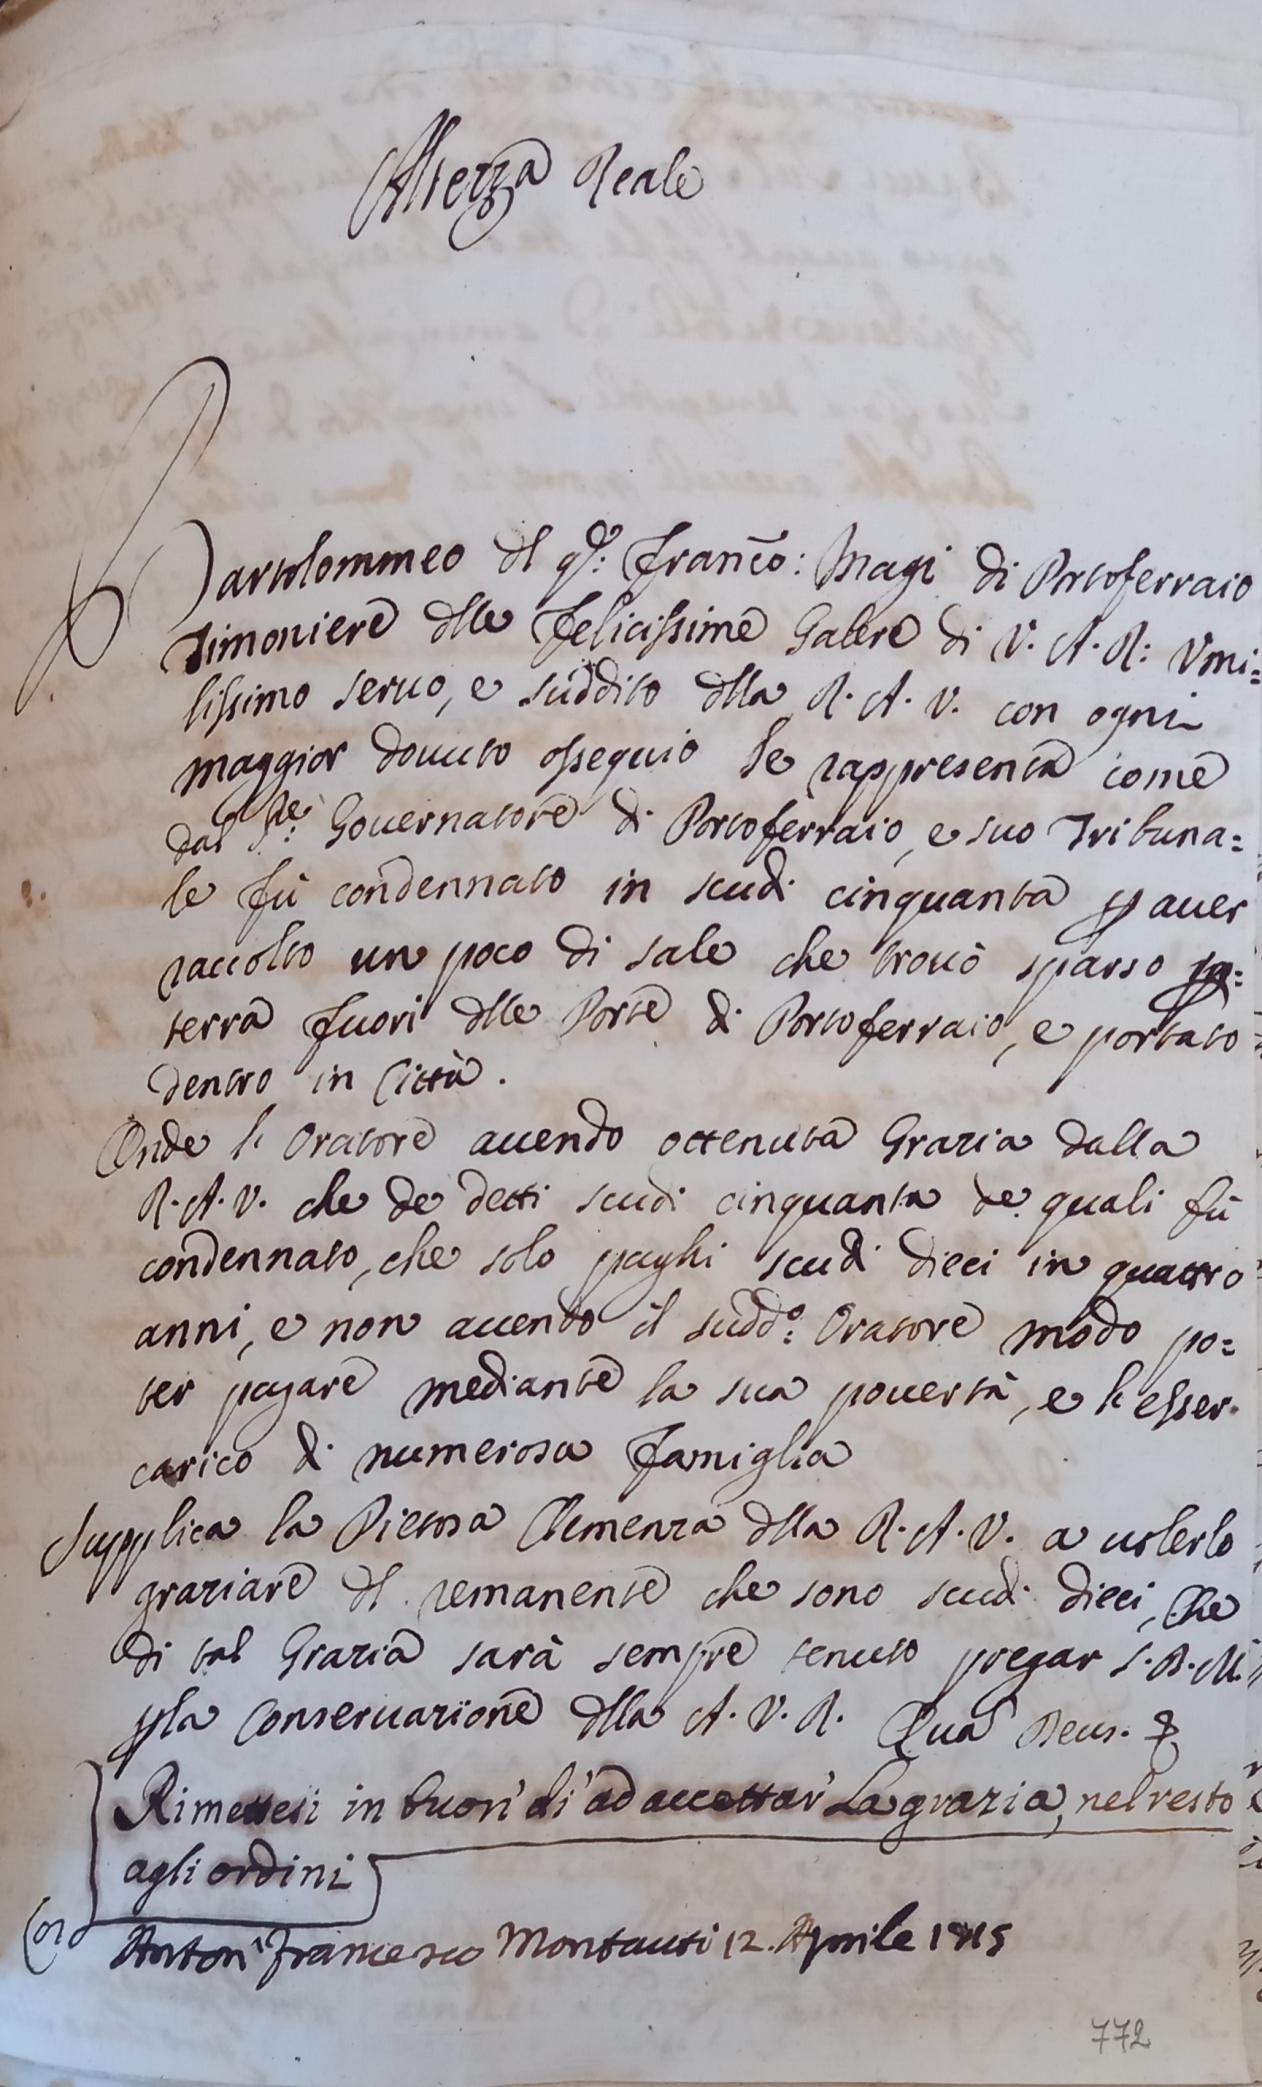 Altezza Reale
Bartolommeo dl qd: Franco: Magi di Portoferraio
Timoniere dlle Felicissime Galere di V. A. R: Vmi=
lissimo seruo, e suddito dlla R. A. V. con ogni
maggior douuto ossequio le rappresenta come
dal Sre: Gouernatore di Portoferraio, e suo Tribuna=
le fù condennato in scudi cinquanta p auer
raccolto un poco di sale che trouò sparso p=
terra fuori dlle Porte di Portoferraio, e portato
dentro in Città.
Onde l'Oratore auendo ottenuta Grazia dalla
R. A. V. che de detti scudi cinquanta de quali fù
condennato, che solo paghi scudi dieci in quattro
anni, e non auendo il sudd:o Oratore modo po=
ter pagare mediante la sua pouertà, e l'esser
carico di numerosa famiglia
Supplica la Pietosa Clemenza dlla R. A. V. a uolerlo
graziare dl remanente che sono scudi dieci, Che
di tal Grazia sarà sempre tenuto pregar S. D. M.
p la Conseruazione dlla A. V. R. Qua Deus.
Rimettesi in buon' dì ad accettar' La grazia, nel resto
agli ordini
Anton' Francesco Montauti 12. Aprile 1715
772